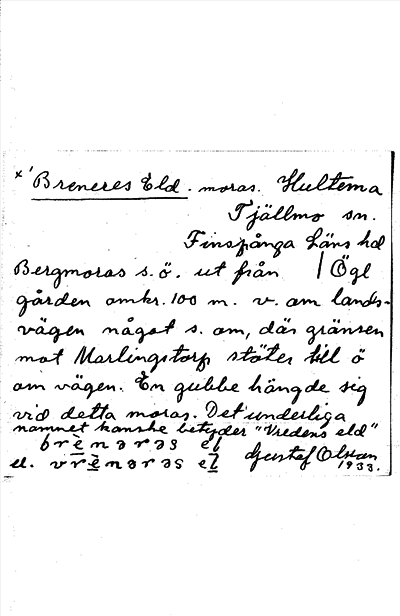 x' Breneres Eld. moras. Hultema
Tjällmo sn.
Finspånga Läns hd
Bergmoras s.ö. ut från / Ögl
gården omkr. 100 m. v. om lands-
vägen något s. om, där gränsen
mot Marlingstorp stöter till ö
om vägen. En gubbe hängde sig
vid detta moras. Det underliga
namnet kanske betyder "Vredens eld"
brènərəs eɭ
el. vrènərəs eɭ Gustaf Olson
1933.